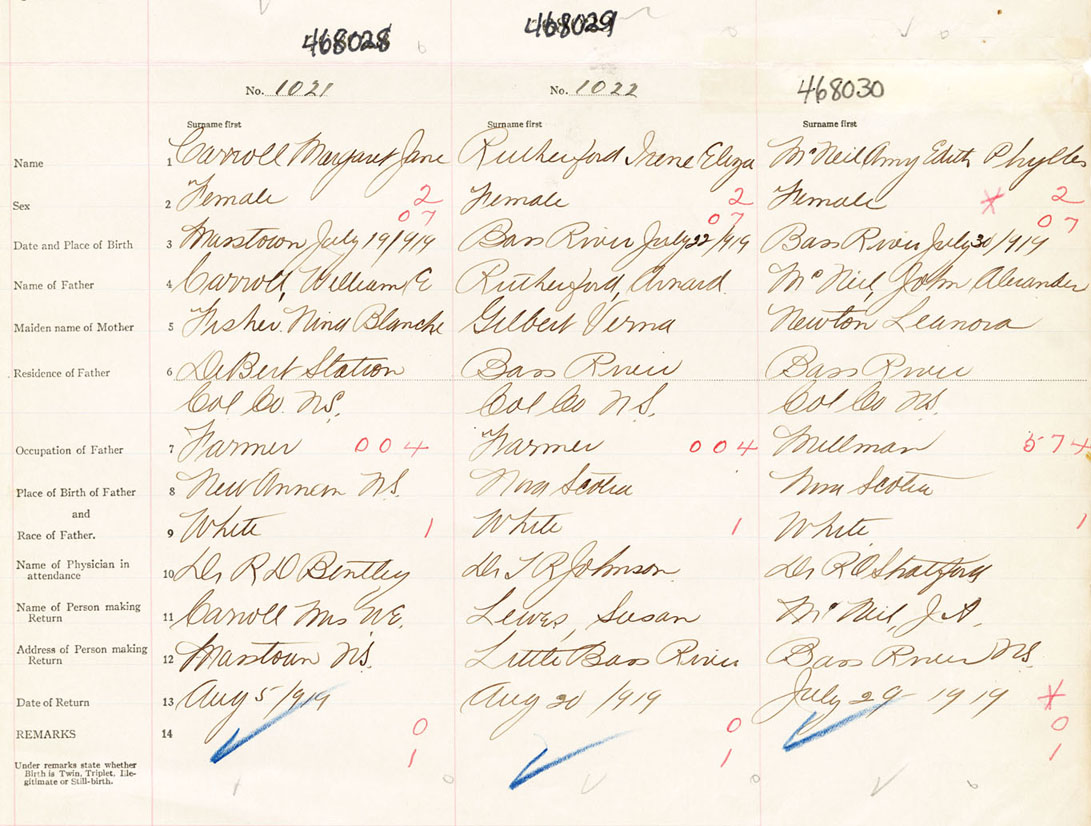 468028 468029
No. 1021 No. 1022 468030
Surname first Surname first Surname first
Name 1 Carroll Margaret Jane Rutherford Irene Eliza McNeil Amy Edith Phylles
Sex 2 Female 2 Female 2 Female X 2
07 07 07
Date and Place of Birth 3 Masstown July 19/1919 Bass River July 22/1919 Bass River July 30/1919
Name of Father 4 Carroll, William E Rutherford, Arnard McNeil, John Alexander
Maiden name of Mother 5 Fisher, Nina Blanche Gilbert Verna Newton Leanora
Residence of Father 6 DeBert Station Bass River Bass River
Col Co. N.S. Col Co N.S. Col Co N.S.
Occupation of Father 7 Farmer 004 Farmer 004 Millman 574
Place of Birth of Father 8 New Annan N.S. Nova Scotia Nova Scotia
and
Race of Father. 9 White 1 White 1 White 1
Name of Physician in
attendance 10 Dr R D Bentley Dr T R Johnson Dr R O Shatford
Name of Person making
Return 11 Carroll Mrs W E. Lewis, Susan McNeil, J A.
Address of Person making
Return 12 Masstown N.S. Little Bass River Bass River N.S.
Date of Return 13 Aug 5/1919 Aug 20 1919 July 29 1919 X
REMARKS 14 0 0 0
1 1 1
Under remarks state whether
Birth is Twin, Triplet, Ille-
gitimate or Still-birth.